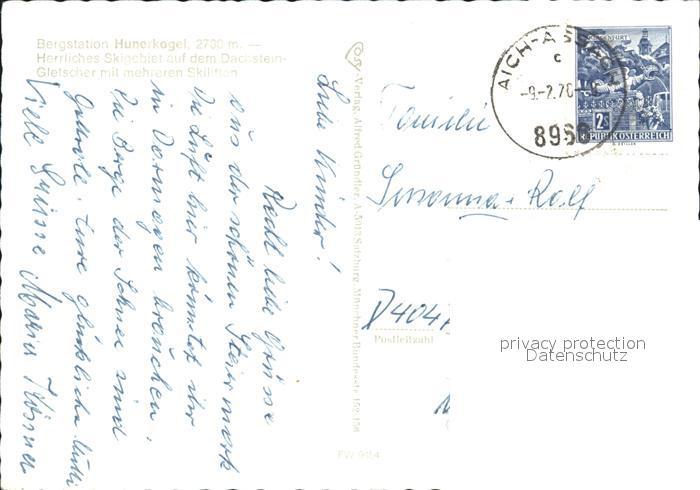 Bergstation Hunerkogel, 2700 m. —
Herrliches Skigebiet auf dem Dachstein-
Gletscher mit mehreren Skiliften
Liebe Kinder!
Recht liebe Grüsse
aus der schönen Steiermark
Die Luft hier könntet ihr
in Dormagen brauchen.
Die Berge der Schnee sind
Eure glückliche Mutti
Viele Grüsse Maria
Cosy-Verlag, Alfred Gründler, A-5013 Salzburg, Münchner Bundesstr. 152-156
FW 9154
AICH-ASSACH
c
-9.-2.70
8966
KLAGENFURT
2S
REPUBLIK ÖSTERREICH
Familie
Susanna + Rolf
D 404
Postleitzahl
privacy protection
Datenschutz